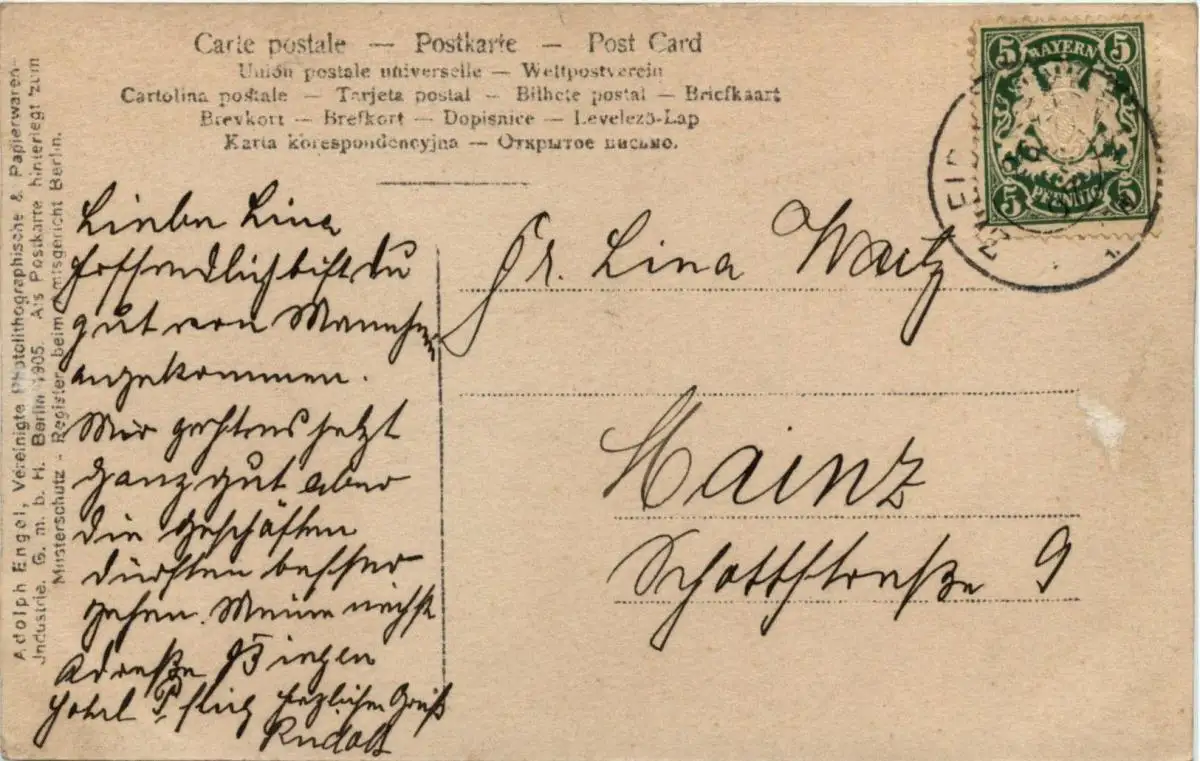 Carte postale — Postkarte — Post Card
Union postale universelle — Weltpostverein
Cartolina postale — Tarjeta postal — Bilhete postal — Briefkaart
Brevkort — Brefkort — Dopisnice — Levelező-Lap
Karta korespondencyjna — Открытое письмо.
Adolph Engel, Vereinigte Photolithographische & Papierwaren-
Industrie. G. m. b. H. Berlin 1905. Als Postkarte hinterlegt zum
Musterschutz - Register beim Amtsgericht Berlin.
5 BAYERN 5
5 PFENNIG 5
Liebe Lina
Hoffendlich bist du
gut von
angekommen.
Mir gehts jetzt
ganz gut aber
die Geschäften
dürften besser
gehen. Meine nächst
Adreße Bingen
Hotel herzlichen Gruß
Rudolf
Fr. Lina
Mainz
Schottstraße 9